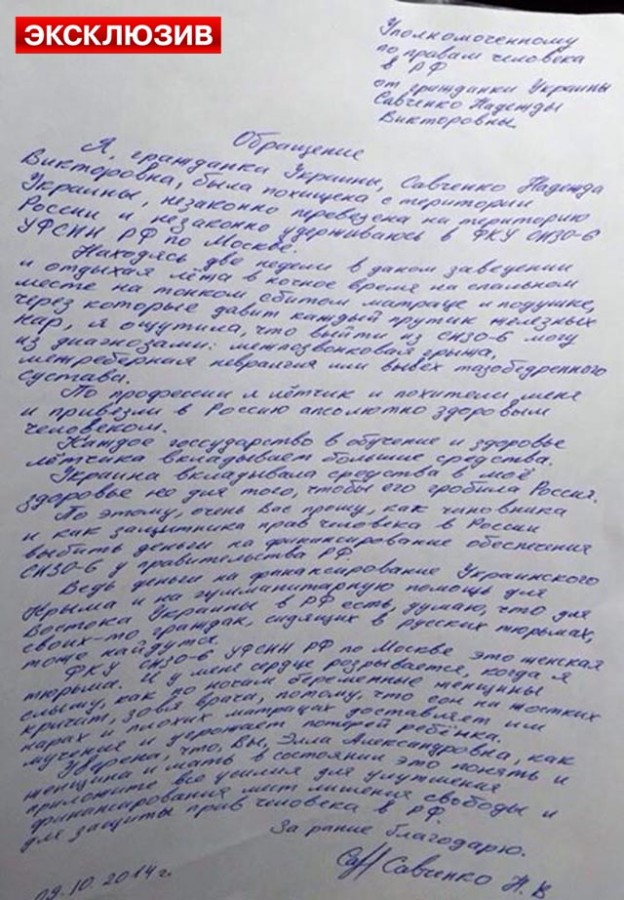 ЭКСКЛЮЗИВ
Уполномоченному
по правам человека
в РФ
от гражданки Украины
Савченко Надежды
Викторовны.
Обращение
Я, гражданки Украины, Савченко Надежда
Викторовна, была похищена с територии
Украины, незаконно перевезена на територию
России и незаконно удерживаюсь в ФКУ СИЗО-6
УФСИН РФ по Москве.
Находясь две недели в даном заведении
и отдыхая лёжа в ночное время на спальном
месте на тонком сбитом матраце и подушке,
через которые давит каждый прутик железных
нар, я ощутила, что выйти из СИЗО-6 могу
из диагнозами: межпозвонковая грыжа,
межреберная невралгия или вывех тазобедренного
сустава.
По профессии я лётчик и похители меня
и привезли в Россию апсолютно здоровым
человеком.
Каждое государство в обучение и здоровье
лётчика вкладывает большие средства.
Украина вкладывала средства в моё
здоровье не для того, чтобы его гробила Россия.
По этому, очень вас прошу, как чиновника
и как защитника прав человека в России
выбить деньги на финансирование обеспечения
СИЗО-6 у правительства РФ.
Ведь деньги на финансирование Украинского
Крыма и на гумманитарную помощь для
Востока Украины в РФ есть, думаю, что для
своих-то граждан, сидящих в русских тюрьмах,
тоже найдутся.
ФКУ СИЗО-6 УФСИН РФ по Москве это женская
тюрьма. И у меня сердце розрывается, когда я
слышу, как по ночам беременные женщины
кричат, зовя врачи, потому, что сон на жостких
нарах и плохих матрацах доставляет им
мучение и угрожает потерей ребёнка.
Уверена, что, Вы, Элла Александровна, как
женщина и мать в состоянии это понять и
приложите все усилия для улутшения
финансирования мест лишения свободы и
для защиты прав человека в РФ.
За рание благодарю.
Савченко Н. В
09.10.2014г.